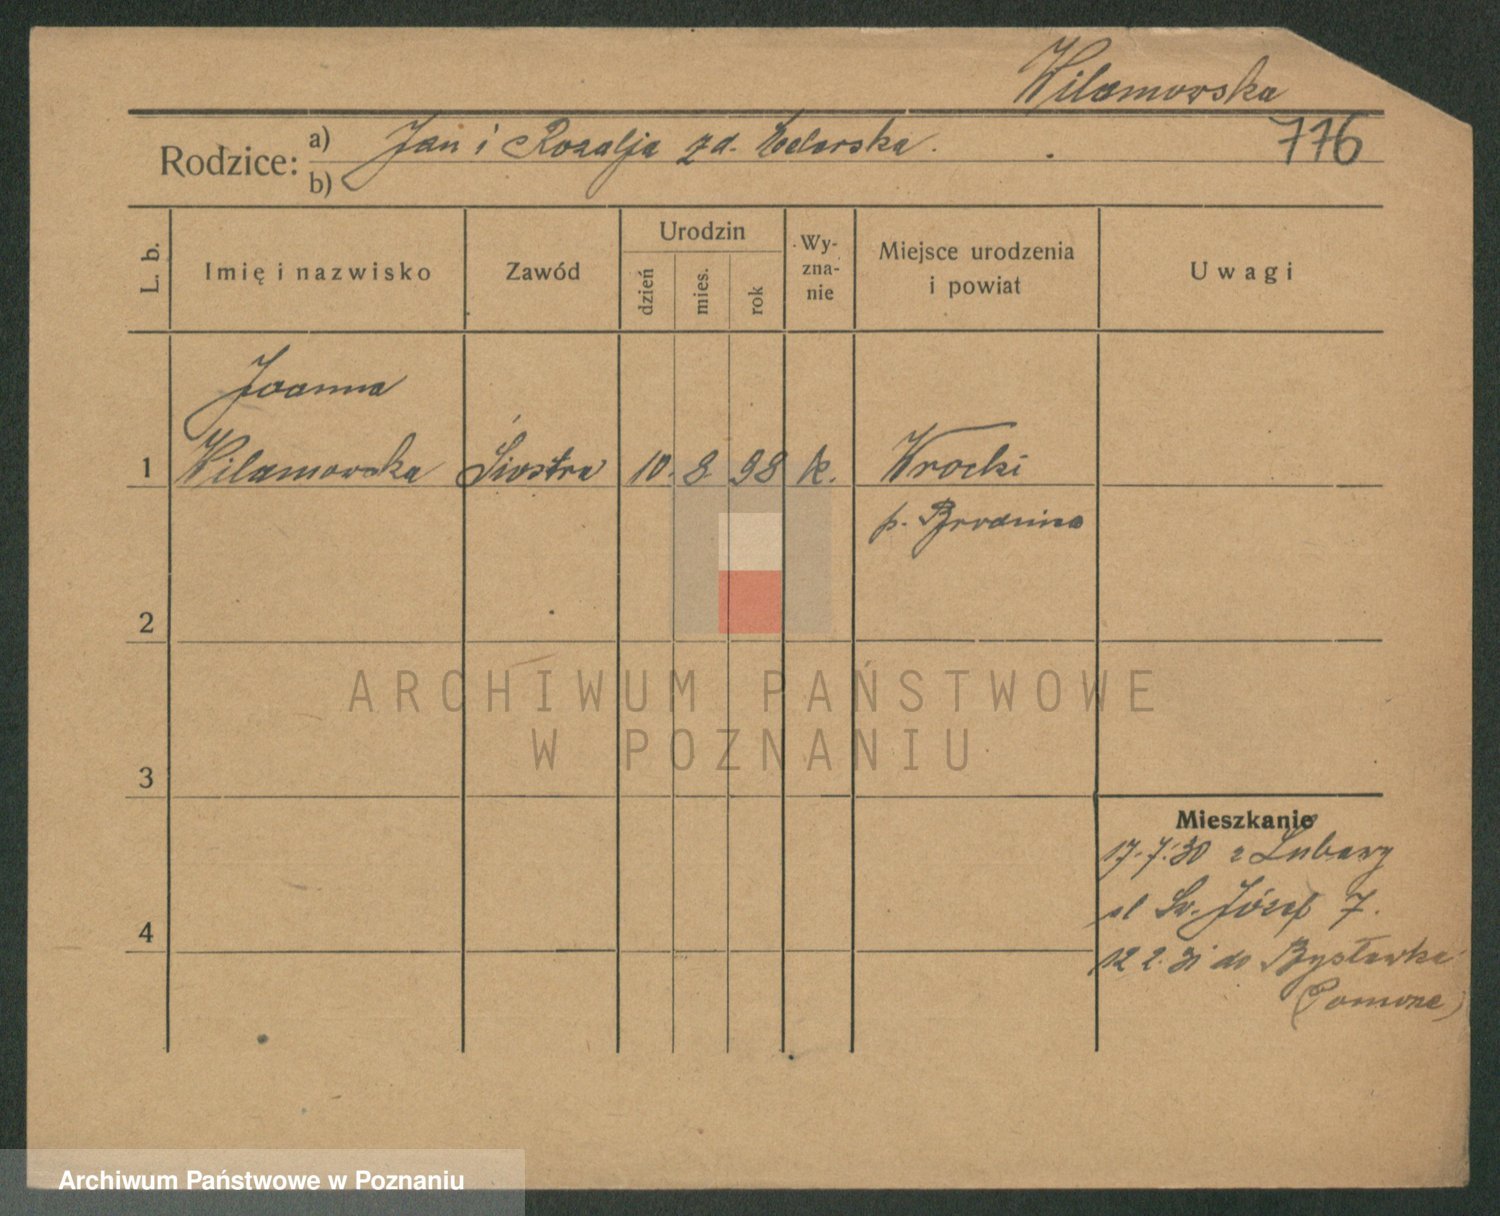 Wilamowska
776
Rodzice:
a) Jan i Rozalja zd.
b)
L. b.
Imię i nazwisko
Zawód
Urodzin
dzień
mies.
rok
Wy-
zna-
nie
Miejsce urodzenia
i powiat
Uwagi
Joanna
1 Wilamowska Siostra 10. 8. 98 k. Wrocki
p. Brodnica
2
3
4
Mieszkanie
17.7.30 z Lubawy
ul Św. Józef 7.
12 2. 31 do Bysławka
(Pomorze)
ARCHIWUM PAŃSTWOWE
W POZNANIU
Archiwum Państwowe w Poznaniu